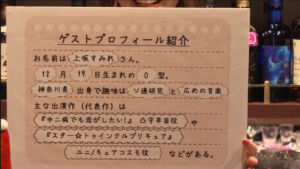 ゲストプロフィール紹介
お名前は 上坂すみれ さん。
12月19日生まれの O型。
神奈川県 出身で趣味は ソ連研究 と 広めの音楽
主な出演作(代表作)は
『中二病でも恋がしたい!』凸守早苗役 や
『スター☆トゥインクルプリキュア』
ユニ/キュアコスモ役 などがある。